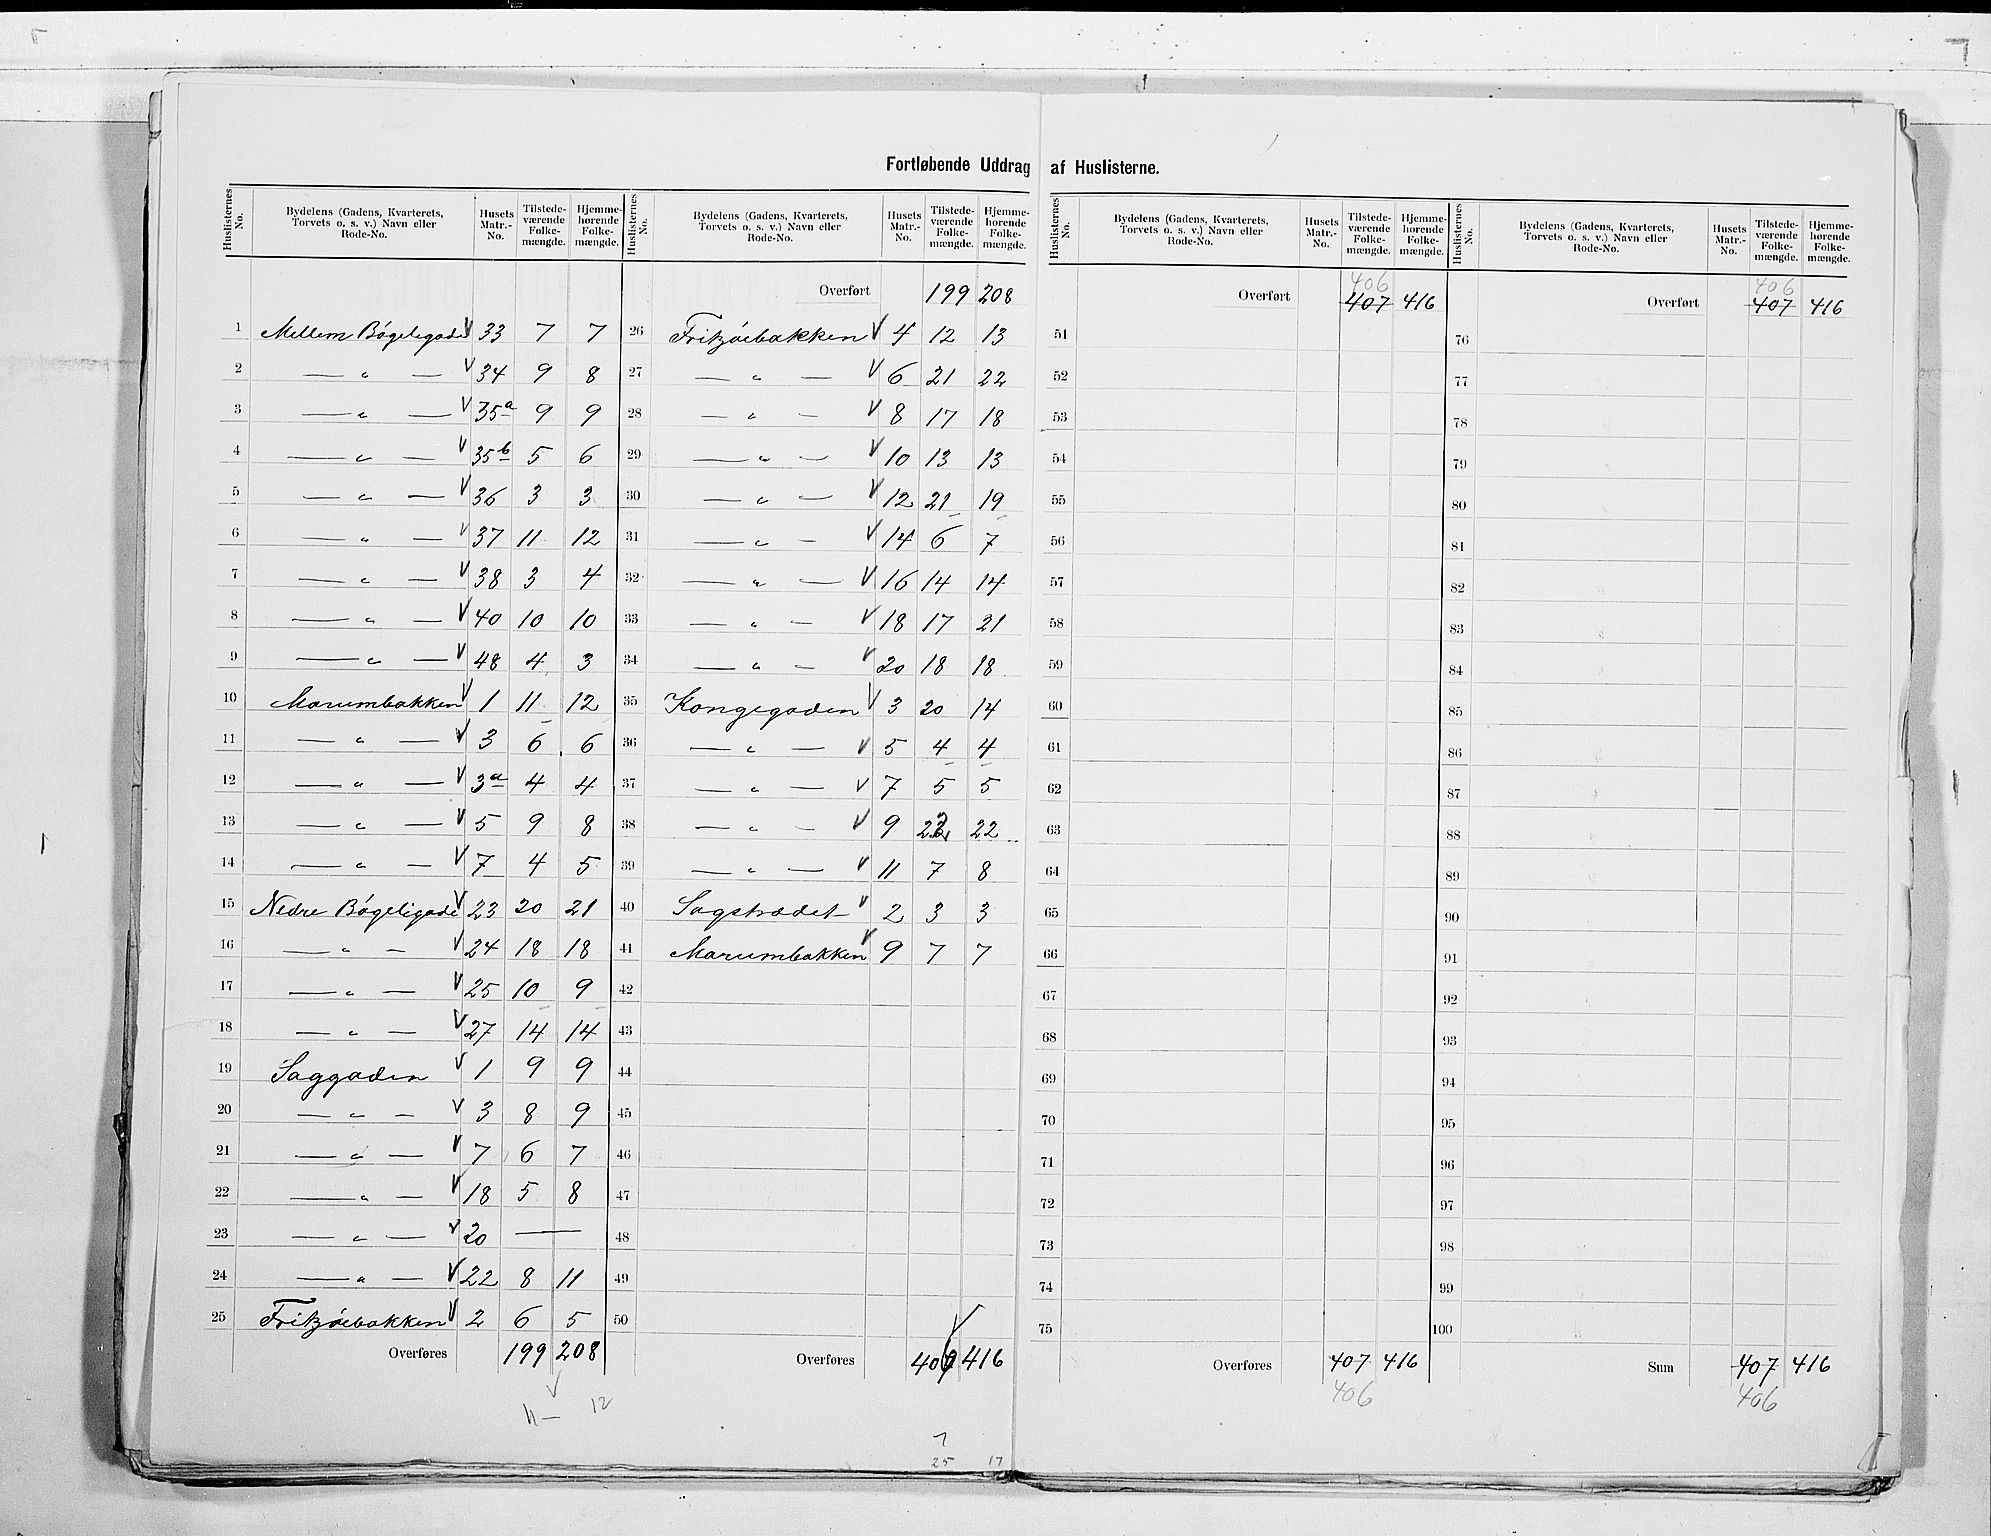 Fortløbende Uddrag af Huslisterne.
Huslisternes No. Bydelens (Gadens, Kvarterets, Torvets o. s. v.) Navn eller Rode-No. Husets Matr.-No. Tilstedeværende Folkemængde. Hjemmehørende Folkemængde.
1 Mellem Bøgeligade V 33 7 7
2 — " — V 34 9 8
3 — " — V 35a 9 9
4 — " — V 35b 5 6
5 — " — V 36 3 3
6 — " — V 37 11 12
7 — " — V 38 3 4
8 — " — V 40 10 10
9 — " — V 48 4 3
10 Marumbakken V 1 11 12
11 — " — V 3 6 6
12 — " — V 3a 4 4
13 — " — V 5 9 8
14 — " — V 7 4 5
15 Nedre Bøgeligade V 23 20 21
16 — " — V 24 18 18
17 — " — V 25 10 9
18 — " — V 27 14 14
19 Saggaden V 1 9 9
20 — " — V 3 8 9
21 — " — V 7 6 7
22 — " — V 18 5 8
23 — " — V 20 —
24 — " — V 22 8 11
25 Fritzøebakken V 2 6 5
Overføres 199 208
11 — 12
Huslisternes No. Bydelens (Gadens, Kvarterets, Torvets o. s. v.) Navn eller Rode-No. Husets Matr.-No. Tilstedeværende Folkemængde. Hjemmehørende Folkemængde.
Overført 199 208
26 Fritzøebakken V 4 12 13
27 — " — V 6 21 22
28 — " — V 8 17 18
29 — " — V 10 13 13
30 — " — V 12 21 19
31 — " — V 14 6 7
32 — " — V 16 14 14
33 — " — V 18 17 21
34 — " — V 20 18 18
35 Kongegaden V 3 20 14
36 — " — V 5 4 4
37 — " — V 7 5 5
38 — " — V 9 22 22
39 — " — V 11 7 8
40 Sagstrædet V 2 3 3
41 Marumbakken V 9 7 7
42
43
44
45
46
47
48
49
50
Overføres 406 416
7
25 17
Huslisternes No. Bydelens (Gadens, Kvarterets, Torvets o. s. v.) Navn eller Rode-No. Husets Matr.-No. Tilstedeværende Folkemængde. Hjemmehørende Folkemængde.
406
Overført 407 416
51
52
53
54
55
56
57
58
59
60
61
62
63
64
65
66
67
68
69
70
71
72
73
74
75
Overføres 407 416
406
Huslisternes No. Bydelens (Gadens, Kvarterets, Torvets o. s. v.) Navn eller Rode-No. Husets Matr.-No. Tilstedeværende Folkemængde. Hjemmehørende Folkemængde.
406
Overført 407 416
76
77
78
79
80
81
82
83
84
85
86
87
88
89
90
91
92
93
94
95
96
97
98
99
100
Sum 407 416
406